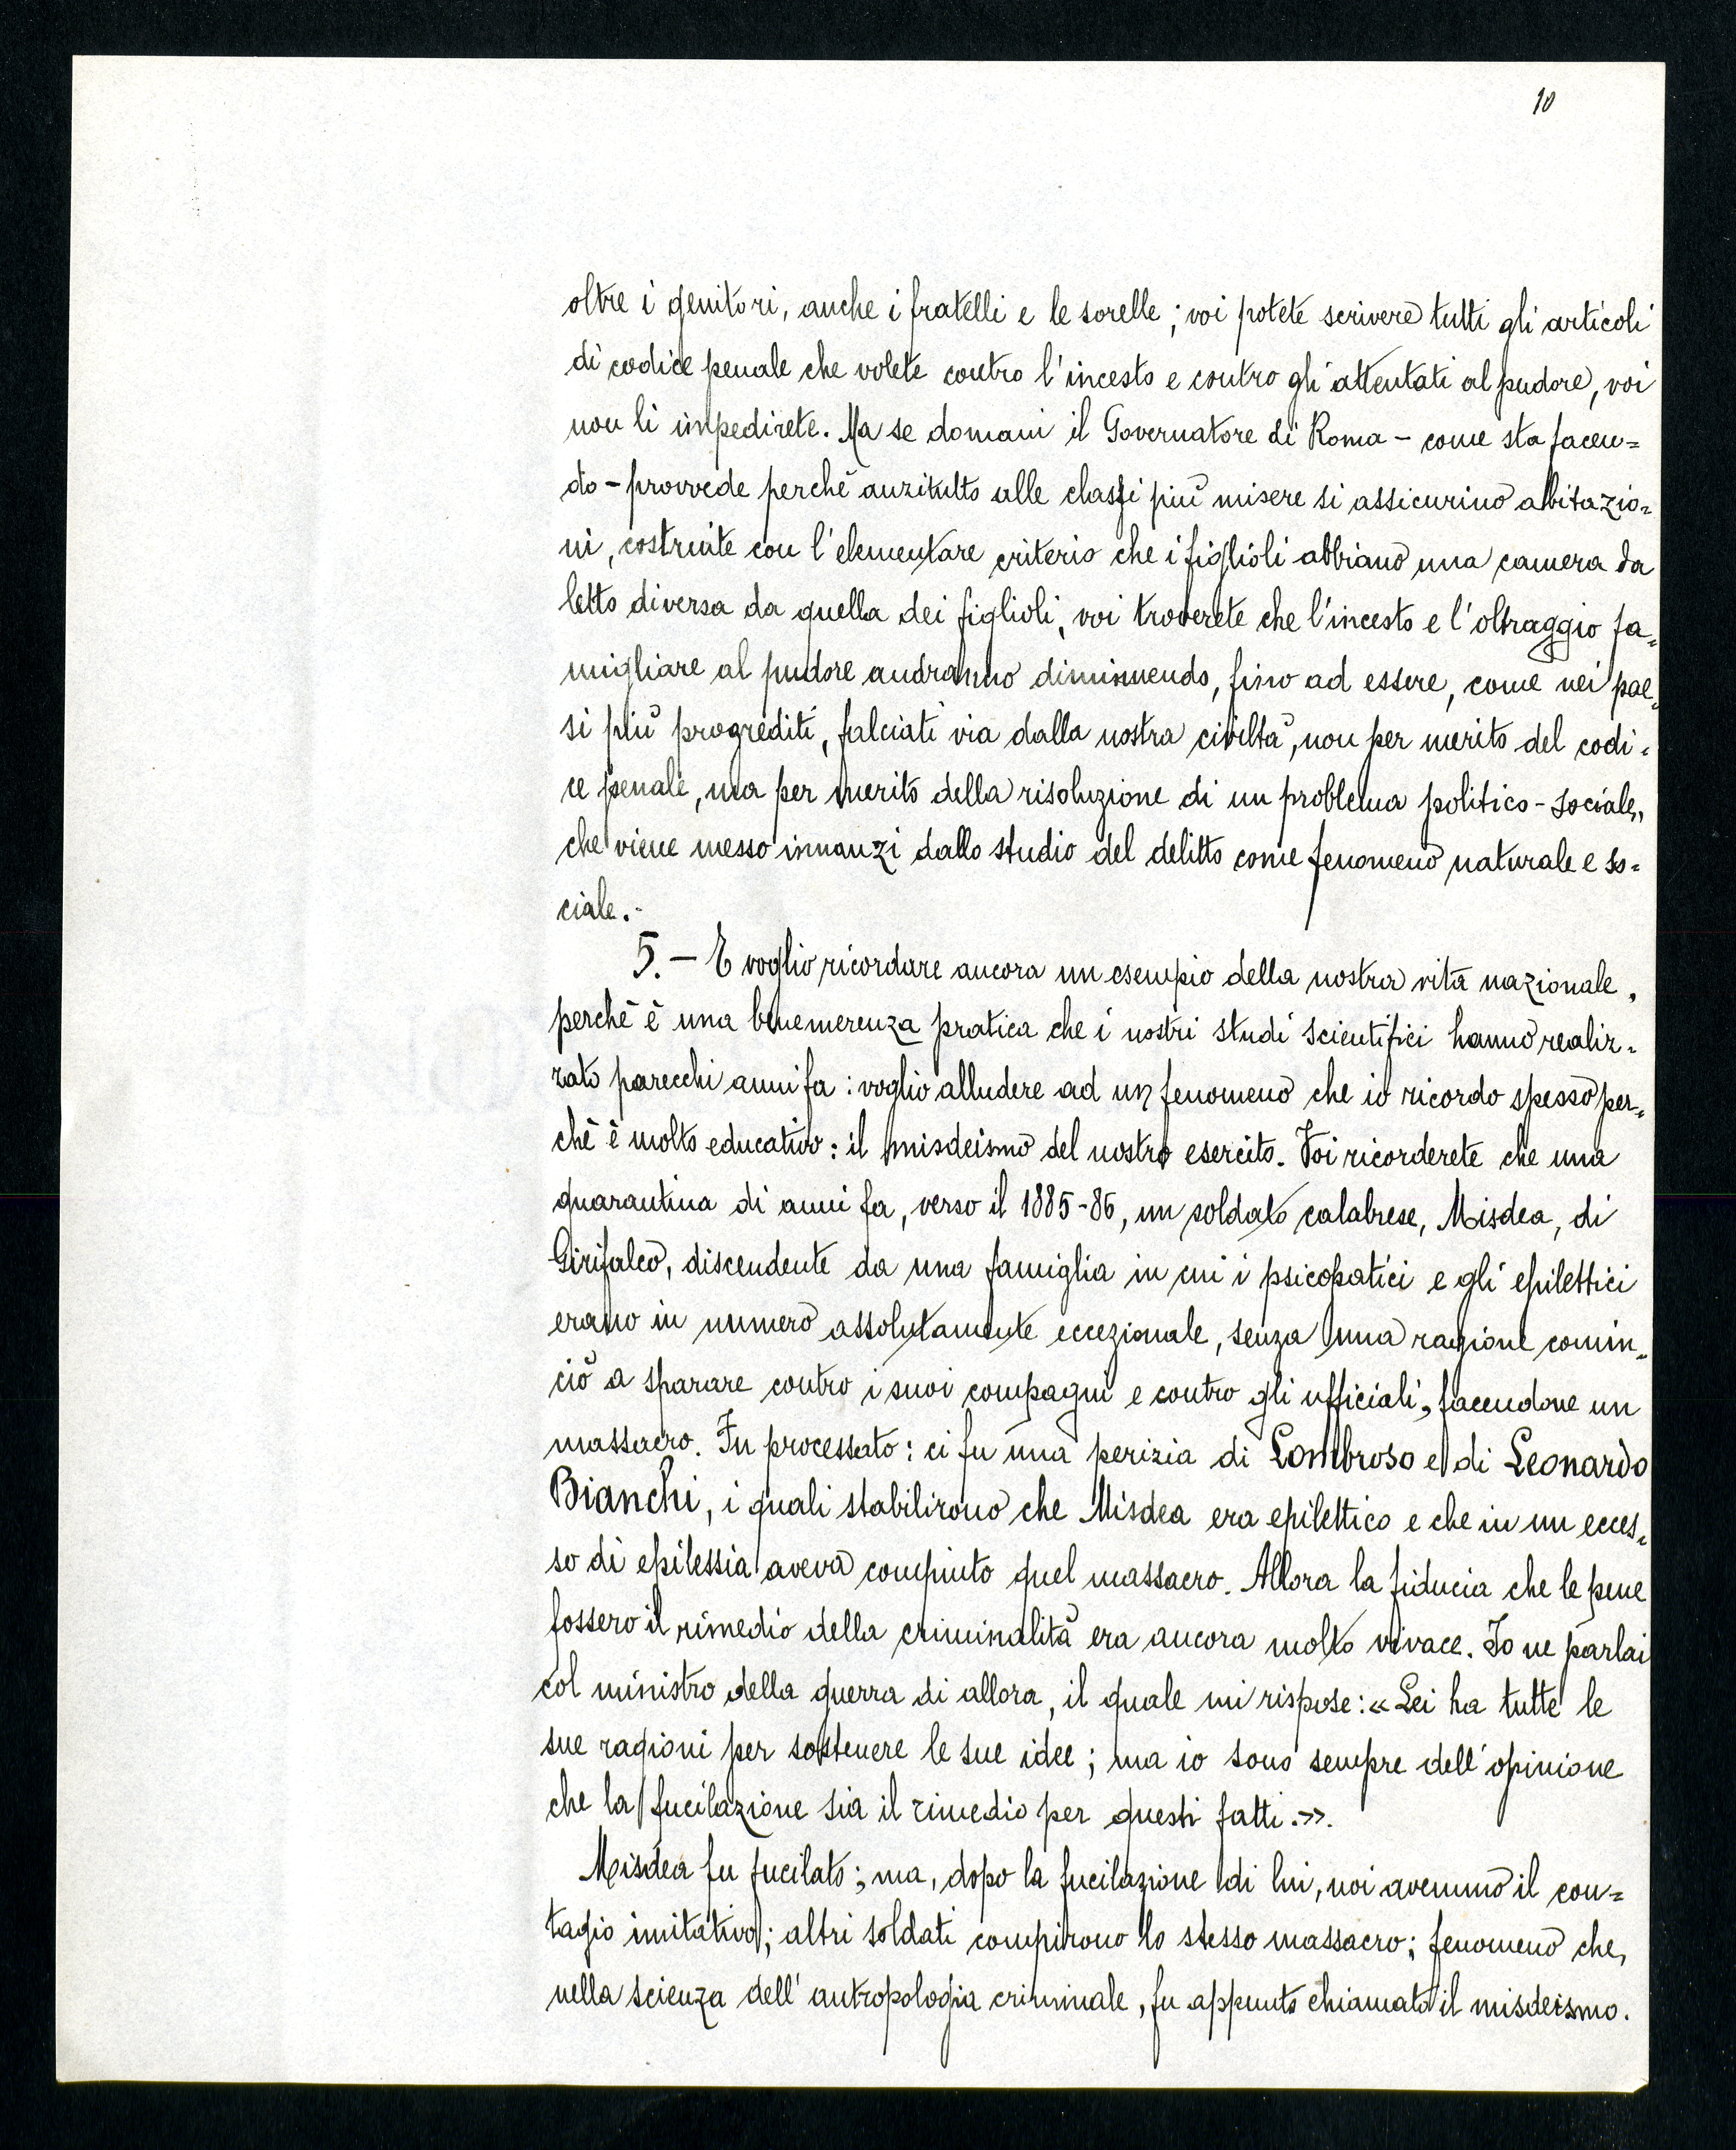 10
oltre i genitori, anche i fratelli e le sorelle; voi potete scrivere tutti gli articoli
di codice penale che volete contro l'incesto e contro gli attentati al pudore, voi
non li impedirete. Ma se domani il Governatore di Roma - come sta facen=
do - provvede perchè anzitutto alle classi più misere si assicurino abitazio=
ni, costruite con l'elementare criterio che i figlioli abbiano una camera da
letto diversa da quella dei figlioli, voi troverete che l'incesto e l'oltraggio fa=
migliare al pudore andranno diminuendo, fino ad essere, come nei pae=
si più progrediti, falciati via dalla nostra civiltà, non per merito del codi=
ce penale, ma per merito della risoluzione di un problema politico-sociale,
che viene messo innanzi dallo studio del delitto come fenomeno naturale e so=
ciale.-
5.- E voglio ricordare ancora un esempio della nostra vita nazionale,
perchè è una benemerenza pratica che i nostri studi scientifici hanno realiz=
zato parecchi anni fa: voglio alludere ad un fenomeno che io ricordo spesso per=
chè è molto educativo: il misdeismo del nostro esercito. Voi ricorderete che una
quarantina di anni fa, verso il 1885-86, un soldato calabrese, Misdea, di
Girifalco, discendente da una famiglia in cui i psicopatici e gli epilettici
erano in numero assolutamente eccezionale, senza una ragione comin=
ciò a sparare contro i suoi compagni e contro gli ufficiali, facendone un
massacro. Fu processato: ci fu una perizia di Lombroso e di Leonardo
Bianchi, i quali stabilirono che Misdea era epilettico e che in un ecces=
so di epilessia aveva compiuto quel massacro. Allora la fiducia che le pene
fossero il rimedio della criminalità era ancora molto vivace. Io ne parlai
col ministro della guerra di allora, il quale mi rispose: «Lei ha tutte le
sue ragioni per sostenere le sue idee; ma io sono sempre dell'opinione
che la fucilazione sia il rimedio per questi fatti.».
Misdea fu fucilato; ma, dopo la fucilazione di lui, noi avemmo il con=
tagio imitativo; altri soldati compirono lo stesso massacro; fenomeno che,
nella scienza dell'antropologia criminale, fu appunto chiamato il misdeismo.